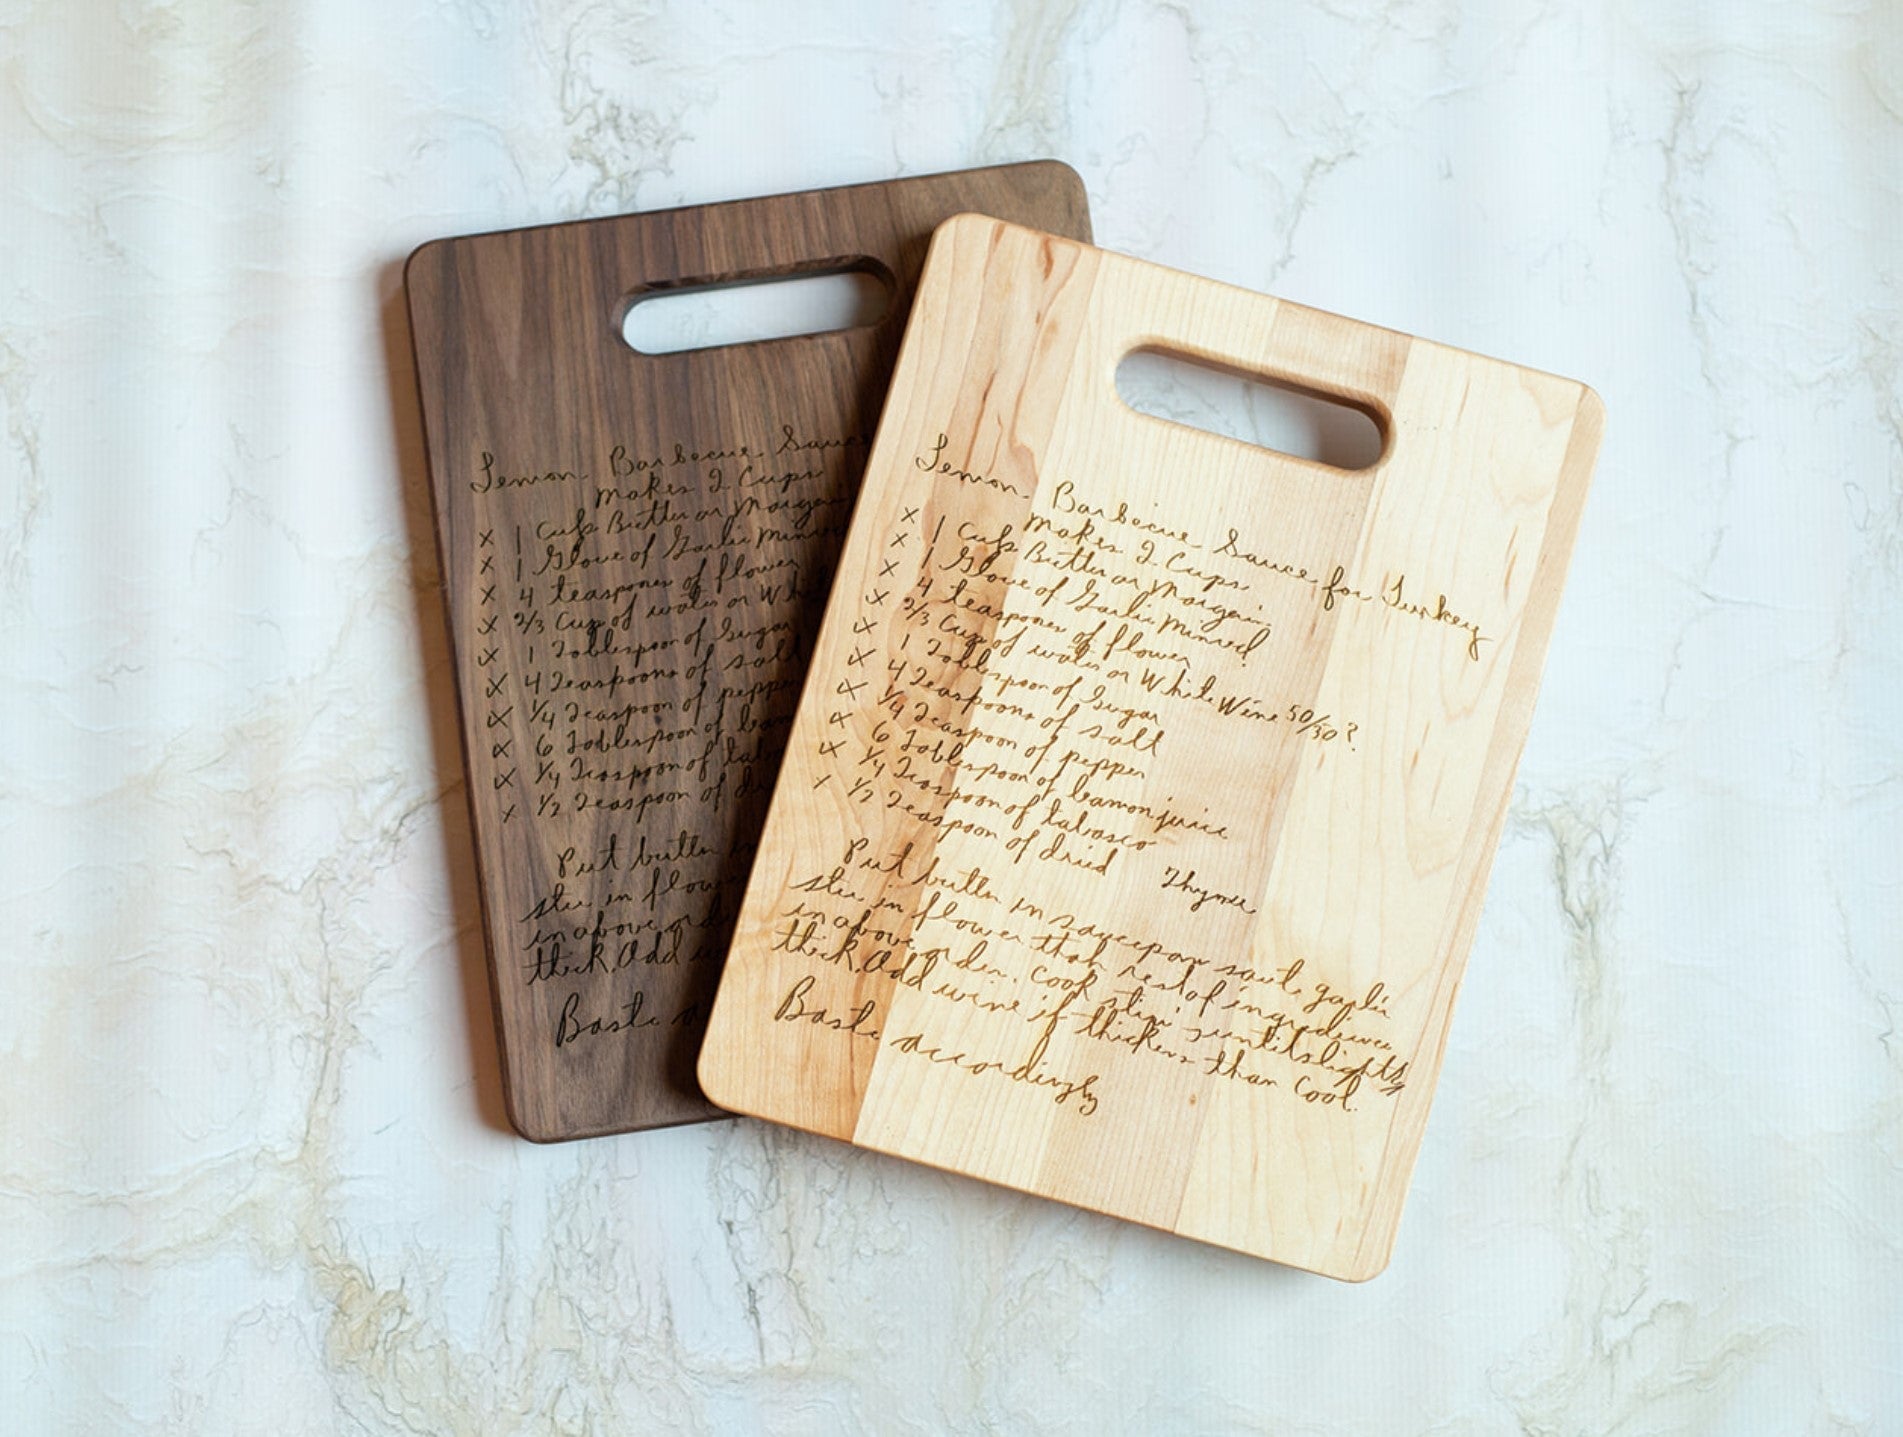 Lemon Barbecue Sauce
Makes 2 Cups
x 1 Cup Butter or Margarin
x 1 Glove of Garlic Minced
x 4 teaspones of flower
x 2/3 Cup of water or Whi
x 1 Tablespoon of Sugar
x 4 Teaspoons of salt
x 1/4 Teaspoon of peppe
x 6 Tablespoon of
x 1/4 Teaspoon of
x 1/2 Teaspoon of
Put butter
stir in flowe
in above orde
thick. Add
Baste
Lemon Barbecue Sauce for Turkey
Makes 2 Cups
x 1 Cup Butter or Margarin.
x 1 Glove of Garlic Minced
x 4 teaspones of flower
x 2/3 Cup of water or White Wine 50/50?
x 1 Tablespoon of Sugar
x 4 Teaspoons of salt
x 1/4 Teaspoon of pepper
x 6 Tablespoon of leamon juice
x 1/4 Teaspoon of tabasco
x 1/2 Teaspoon of dried Thyme
Put butter in saucepan saute garlic
stir in flower than rest of ingredience
in above order. Cook stirin until slightly
thick. Add wine if thickens than Cool.
Baste accordingly